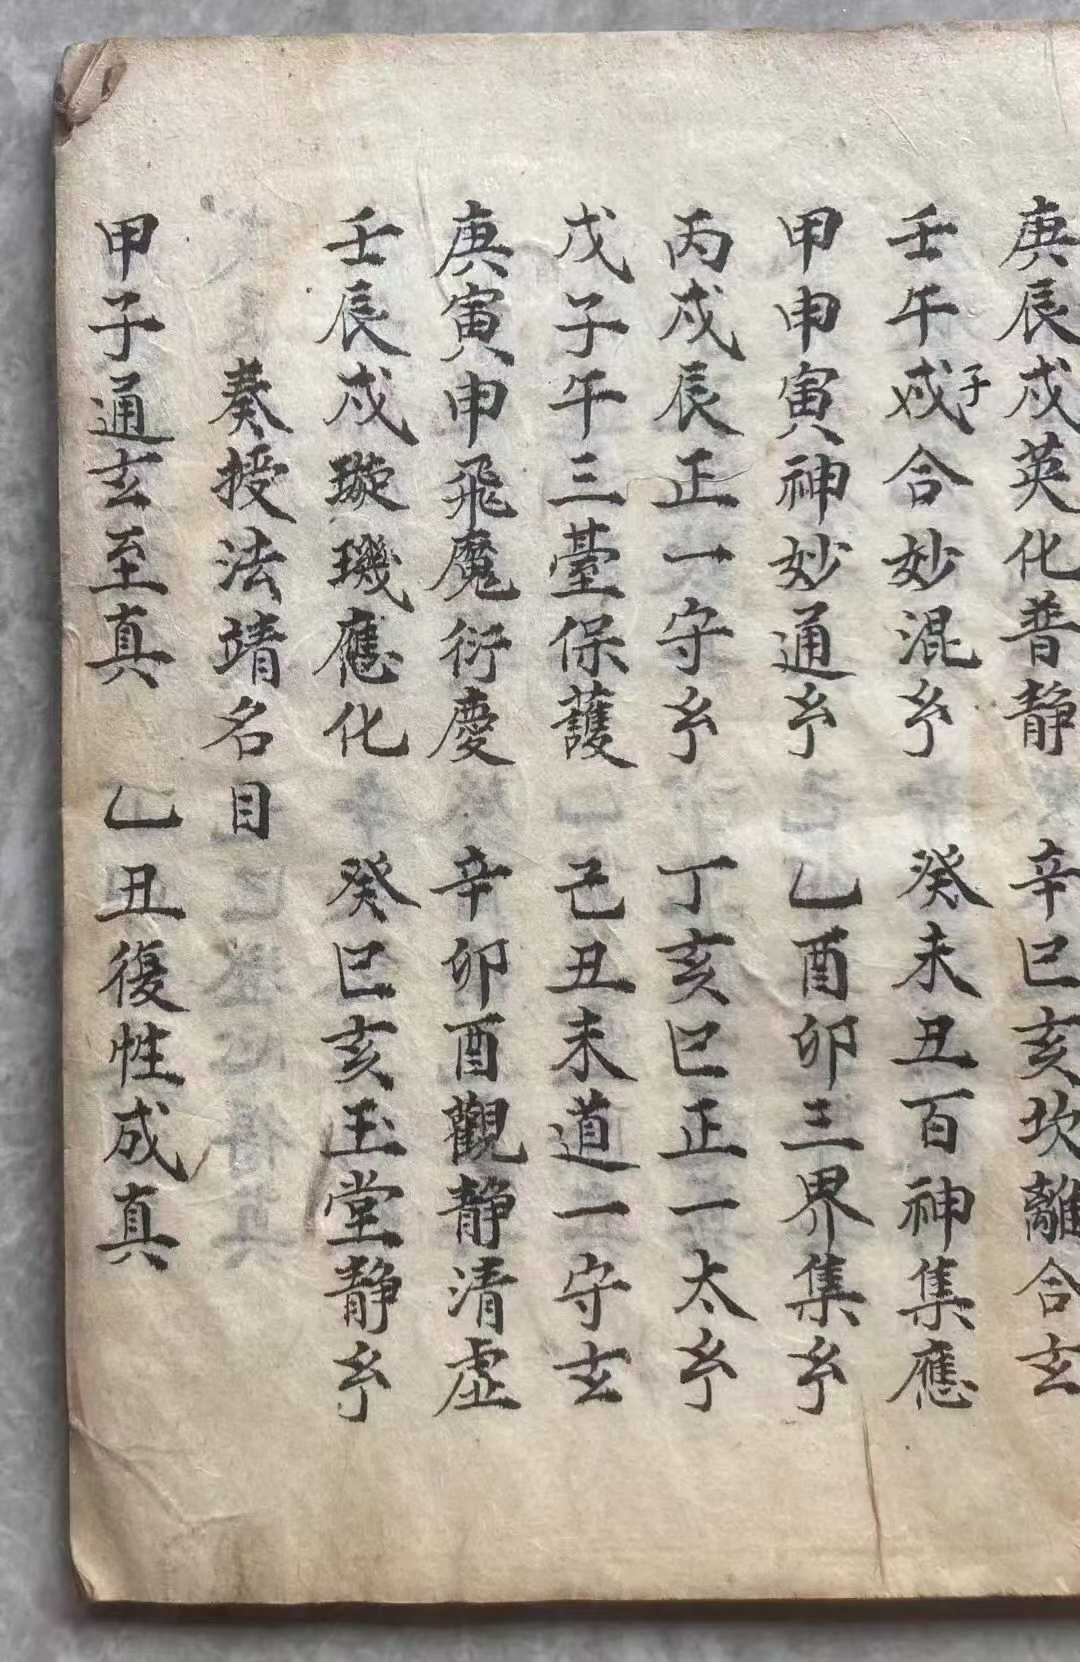 庚辰戌英化普静 辛巳亥坎離合玄
壬午戌子合妙混 癸未丑百神集應
甲申寅神妙通 乙酉卯三界集
丙戌辰正一守 丁亥巳正一太
戊子午三臺保護 己丑未道一守玄
庚寅申飛魔衍慶 辛卯酉觀静清虛
壬辰戌璇璣應化 癸巳亥玉堂静
奏授法靖名目
甲子通玄至真 乙丑復性成真